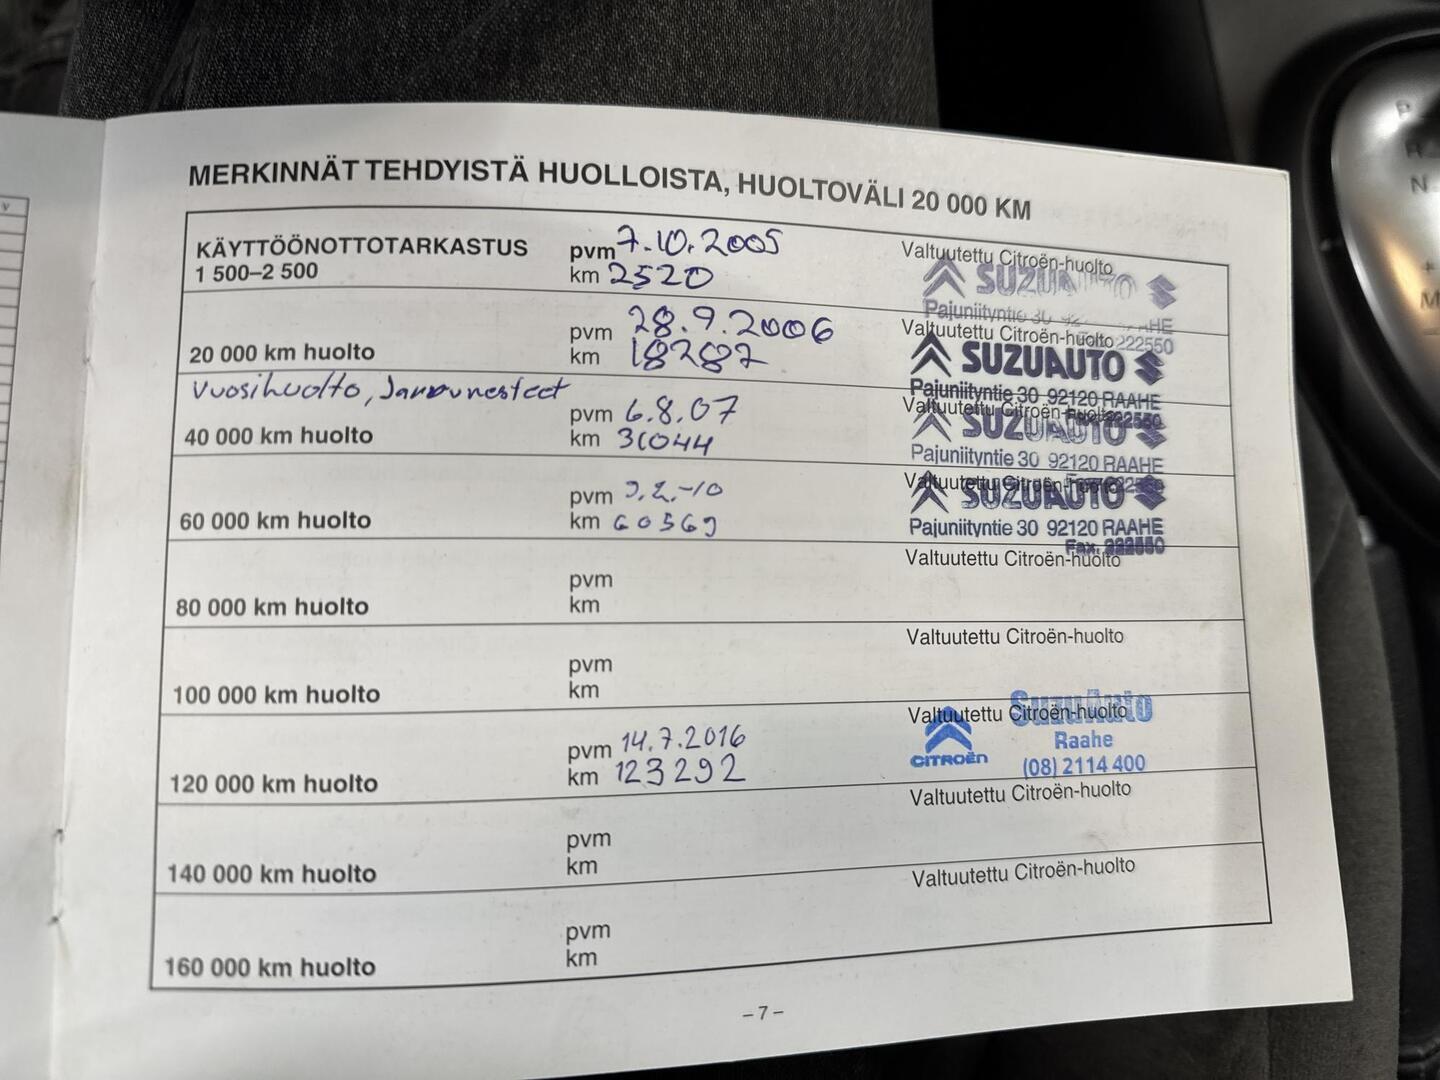 MERKINNÄT TEHDYISTÄ HUOLLOISTA, HUOLTOVÄLI 20 000 KM
KÄYTTÖÖNOTTOTARKASTUS
1 500–2 500
pvm 7.10.2005
km 2520
Valtuutettu Citroën-huolto
SUZUAUTO
Pajuniityntie 30
RAAHE
222550
20 000 km huolto
pvm 28.9.2006
km 18287
Valtuutettu Citroën-huolto
SUZUAUTO
Pajuniityntie 30 92120 RAAHE
222550
Vuosihuolto, Jarrunesteet
40 000 km huolto
pvm 6.8.07
km 31044
Valtuutettu Citroën-huolto
SUZUAUTO
Pajuniityntie 30 92120 RAAHE
60 000 km huolto
pvm 9.2.-10
km 60569
Valtuutettu Citroën-huolto
SUZUAUTO
Pajuniityntie 30 92120 RAAHE
Fax. 222550
80 000 km huolto
pvm
km
Valtuutettu Citroën-huolto
100 000 km huolto
pvm
km
Valtuutettu Citroën-huolto
120 000 km huolto
pvm 14.7.2016
km 123292
Valtuutettu Citroën-huolto
SuzuAuto
Raahe
CITROËN
(08) 2114 400
140 000 km huolto
pvm
km
Valtuutettu Citroën-huolto
160 000 km huolto
pvm
km
Valtuutettu Citroën-huolto
– 7 –
v
P
R
N
+
M